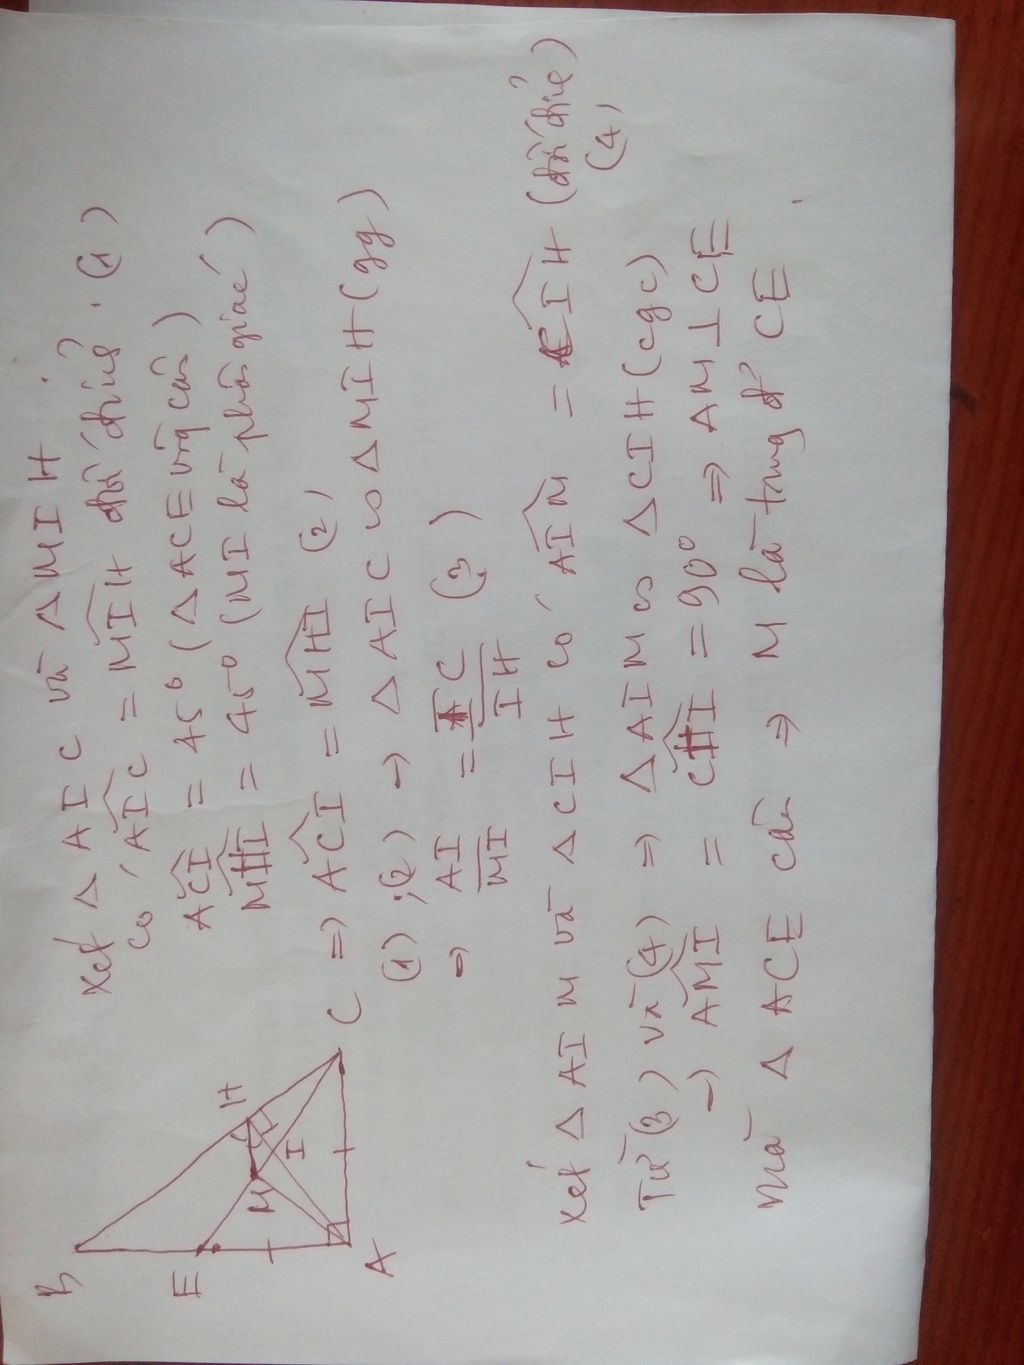 B
E
A
M
H
I
C
Xét Δ AIC và Δ MIH
có AIC = MIH đối đỉnh. (1)
ACI = 45° (Δ ACE vg cân)
MHI = 45° (MI là phân giác)
⇒ ACI = MHI (2)
(1);(2) → Δ AIC ∽ Δ MIH (gg)
⇒ AI/MI = IC/IH (3)
Xét Δ AIM và Δ CIH có AIM = CIH (đối đỉnh) (4)
Từ (3) và (4) ⇒ Δ AIM ∽ Δ CIH (cgc)
→ AMI = CHI = 90° ⇒ AM ⊥ CE
mà Δ ACE cân ⇒ M là trung đ² CE.